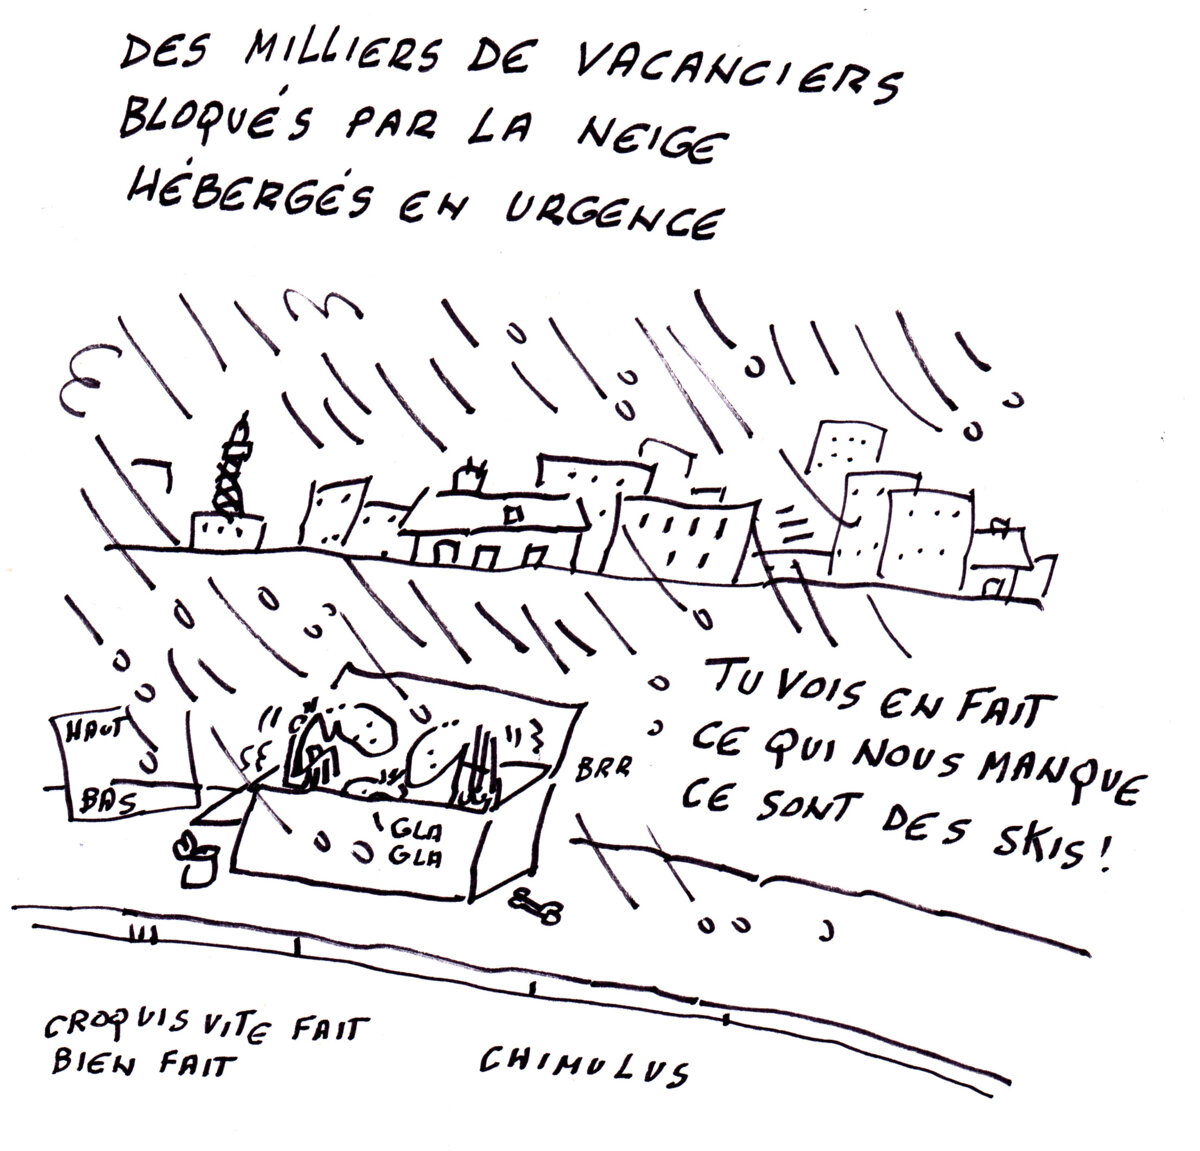 DES MILLIERS DE VACANCIERS
BLOQUÉS PAR LA NEIGE
HÉBERGÉS EN URGENCE
TU VOIS EN FAIT
CE QUI NOUS MANQUE
CE SONT DES SKIS !
HAUT
BAS
BRR
GLA
GLA
CROQUIS VITE FAIT
BIEN FAIT
CHIMULUS